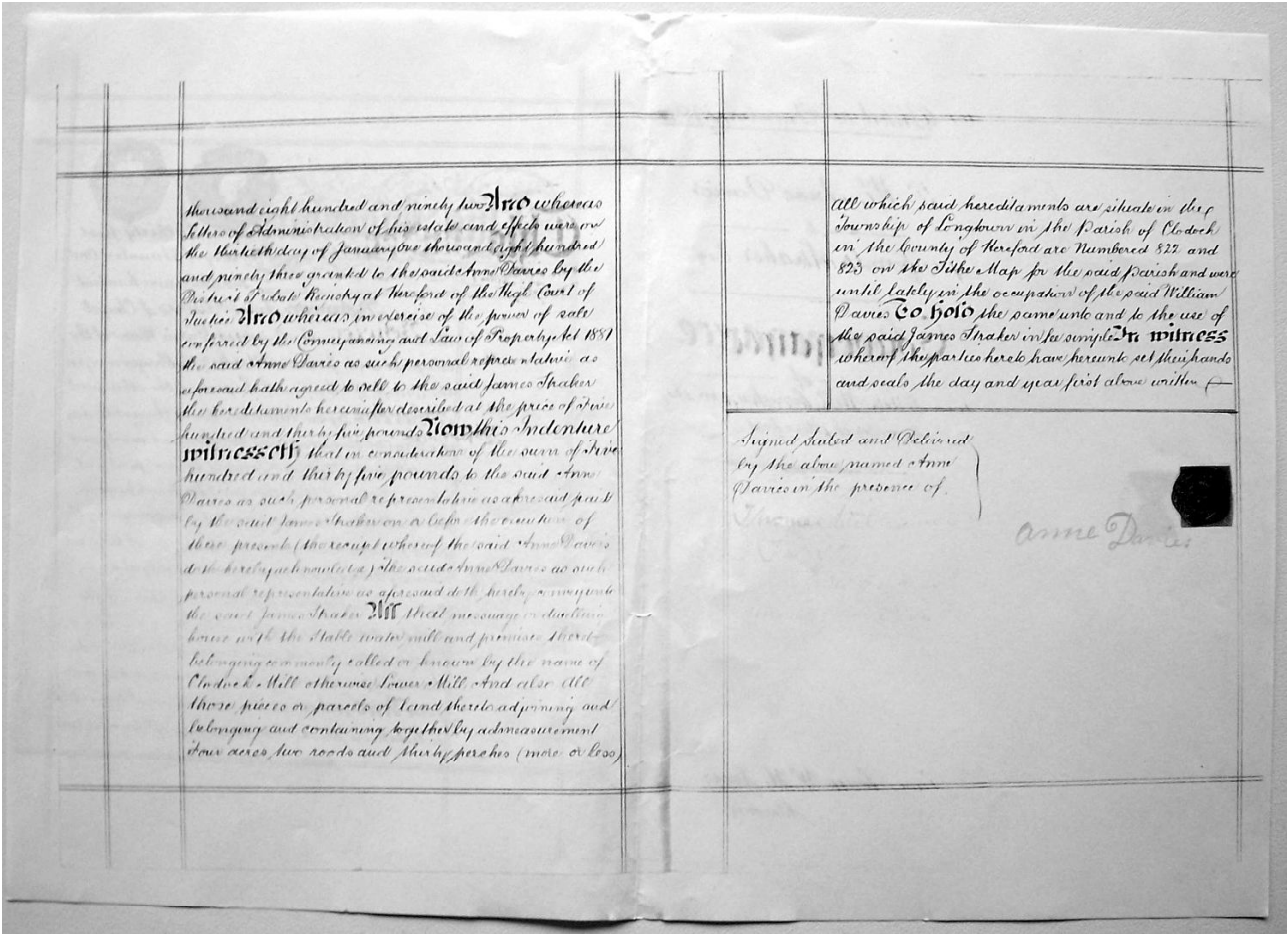 thousand eight hundred and ninety two And whereas
Letters of Administration of his estate and effects were on
the thirtieth day of January one thousand eight hundred
and ninety three granted to the said Anne Davies by the
District Probate Registry at Hereford of the High Court of
Justice And whereas in exercise of the power of sale
conferred by the Conveyancing and Law of Property Act 1881
the said Anne Davies as such personal representative as
aforesaid hath agreed to sell to the said James Straker
the hereditaments hereinafter described at the price of Five
hundred and thirty five pounds Now this Indenture
witnesseth that in consideration of the sum of Five
hundred and thirty five pounds to the said Anne
Davies as such personal representative as aforesaid paid
by the said James Straker on or before the execution of
these presents (the receipt whereof the said Anne Davies
doth hereby acknowledge) The said Anne Davies as such
personal representative as aforesaid doth hereby convey unto
the said James Straker All that messuage or dwelling
house with the Stable water mill and premises thereto
belonging commonly called or known by the name of
Clodock Mill otherwise Lower Mill And also All
those pieces or parcels of land thereto adjoining and
belonging and containing together by admeasurement
Four acres two roods and thirty perches (more or less)
All which said hereditaments are situate in the
Township of Longtown in the Parish of Clodock
in the County of Hereford are Numbered 822 and
823 on the Tithe Map for the said Parish and were
until lately in the occupation of the said William
Davies To hold the same unto and to the use of
the said James Straker in fee simple In witness
whereof the parties hereto have hereunto set their hands
and seals the day and year first above written
Signed Sealed and Delivered
by the above named Anne
Davies in the presence of
Anne Davies